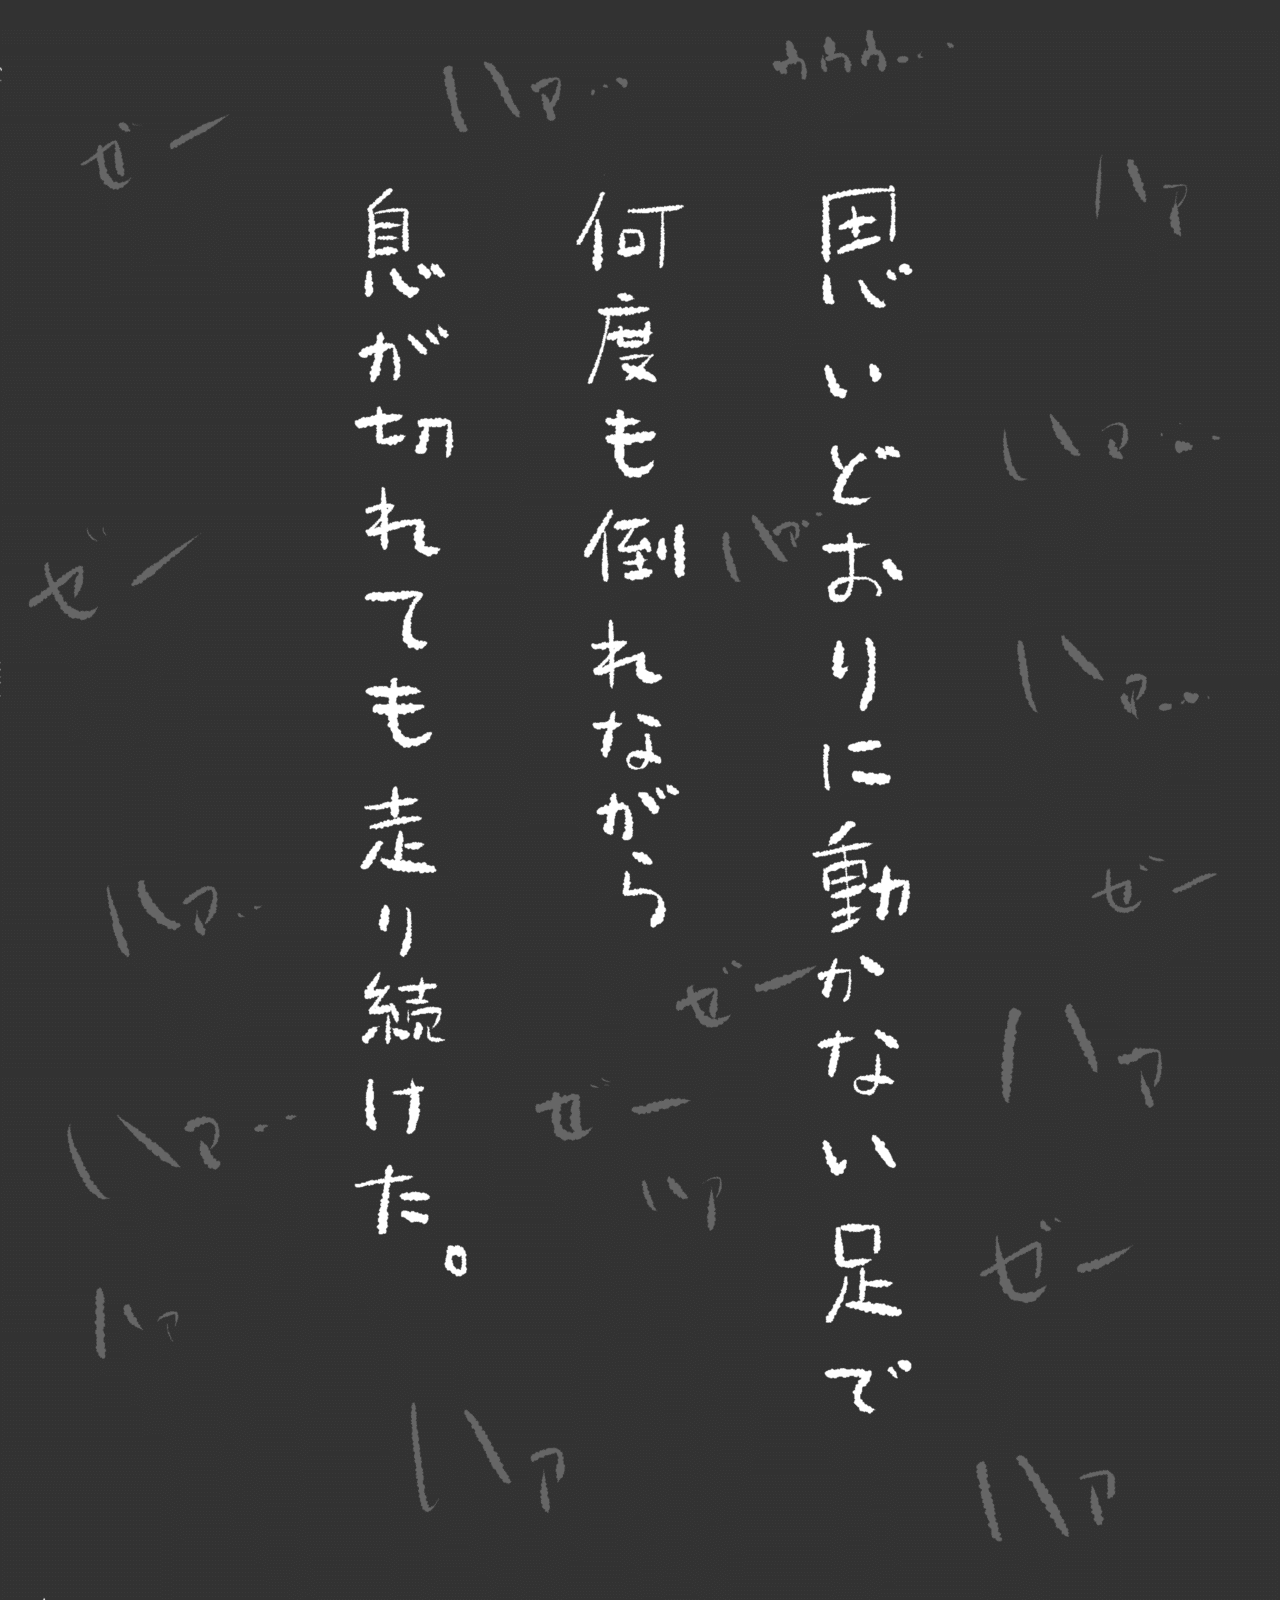 思いどおりに動かない足で
何度も倒れながら
息が切れても走り続けた。
ハァ…
ゼー
ハァ
ハァ…
ハァ…
ゼー
ハァ…
ゼー
ハァ…
ゼー
ハァ
ハァ…
ゼー
ハァ
ゼー
ハァ
ハァ
ハァ